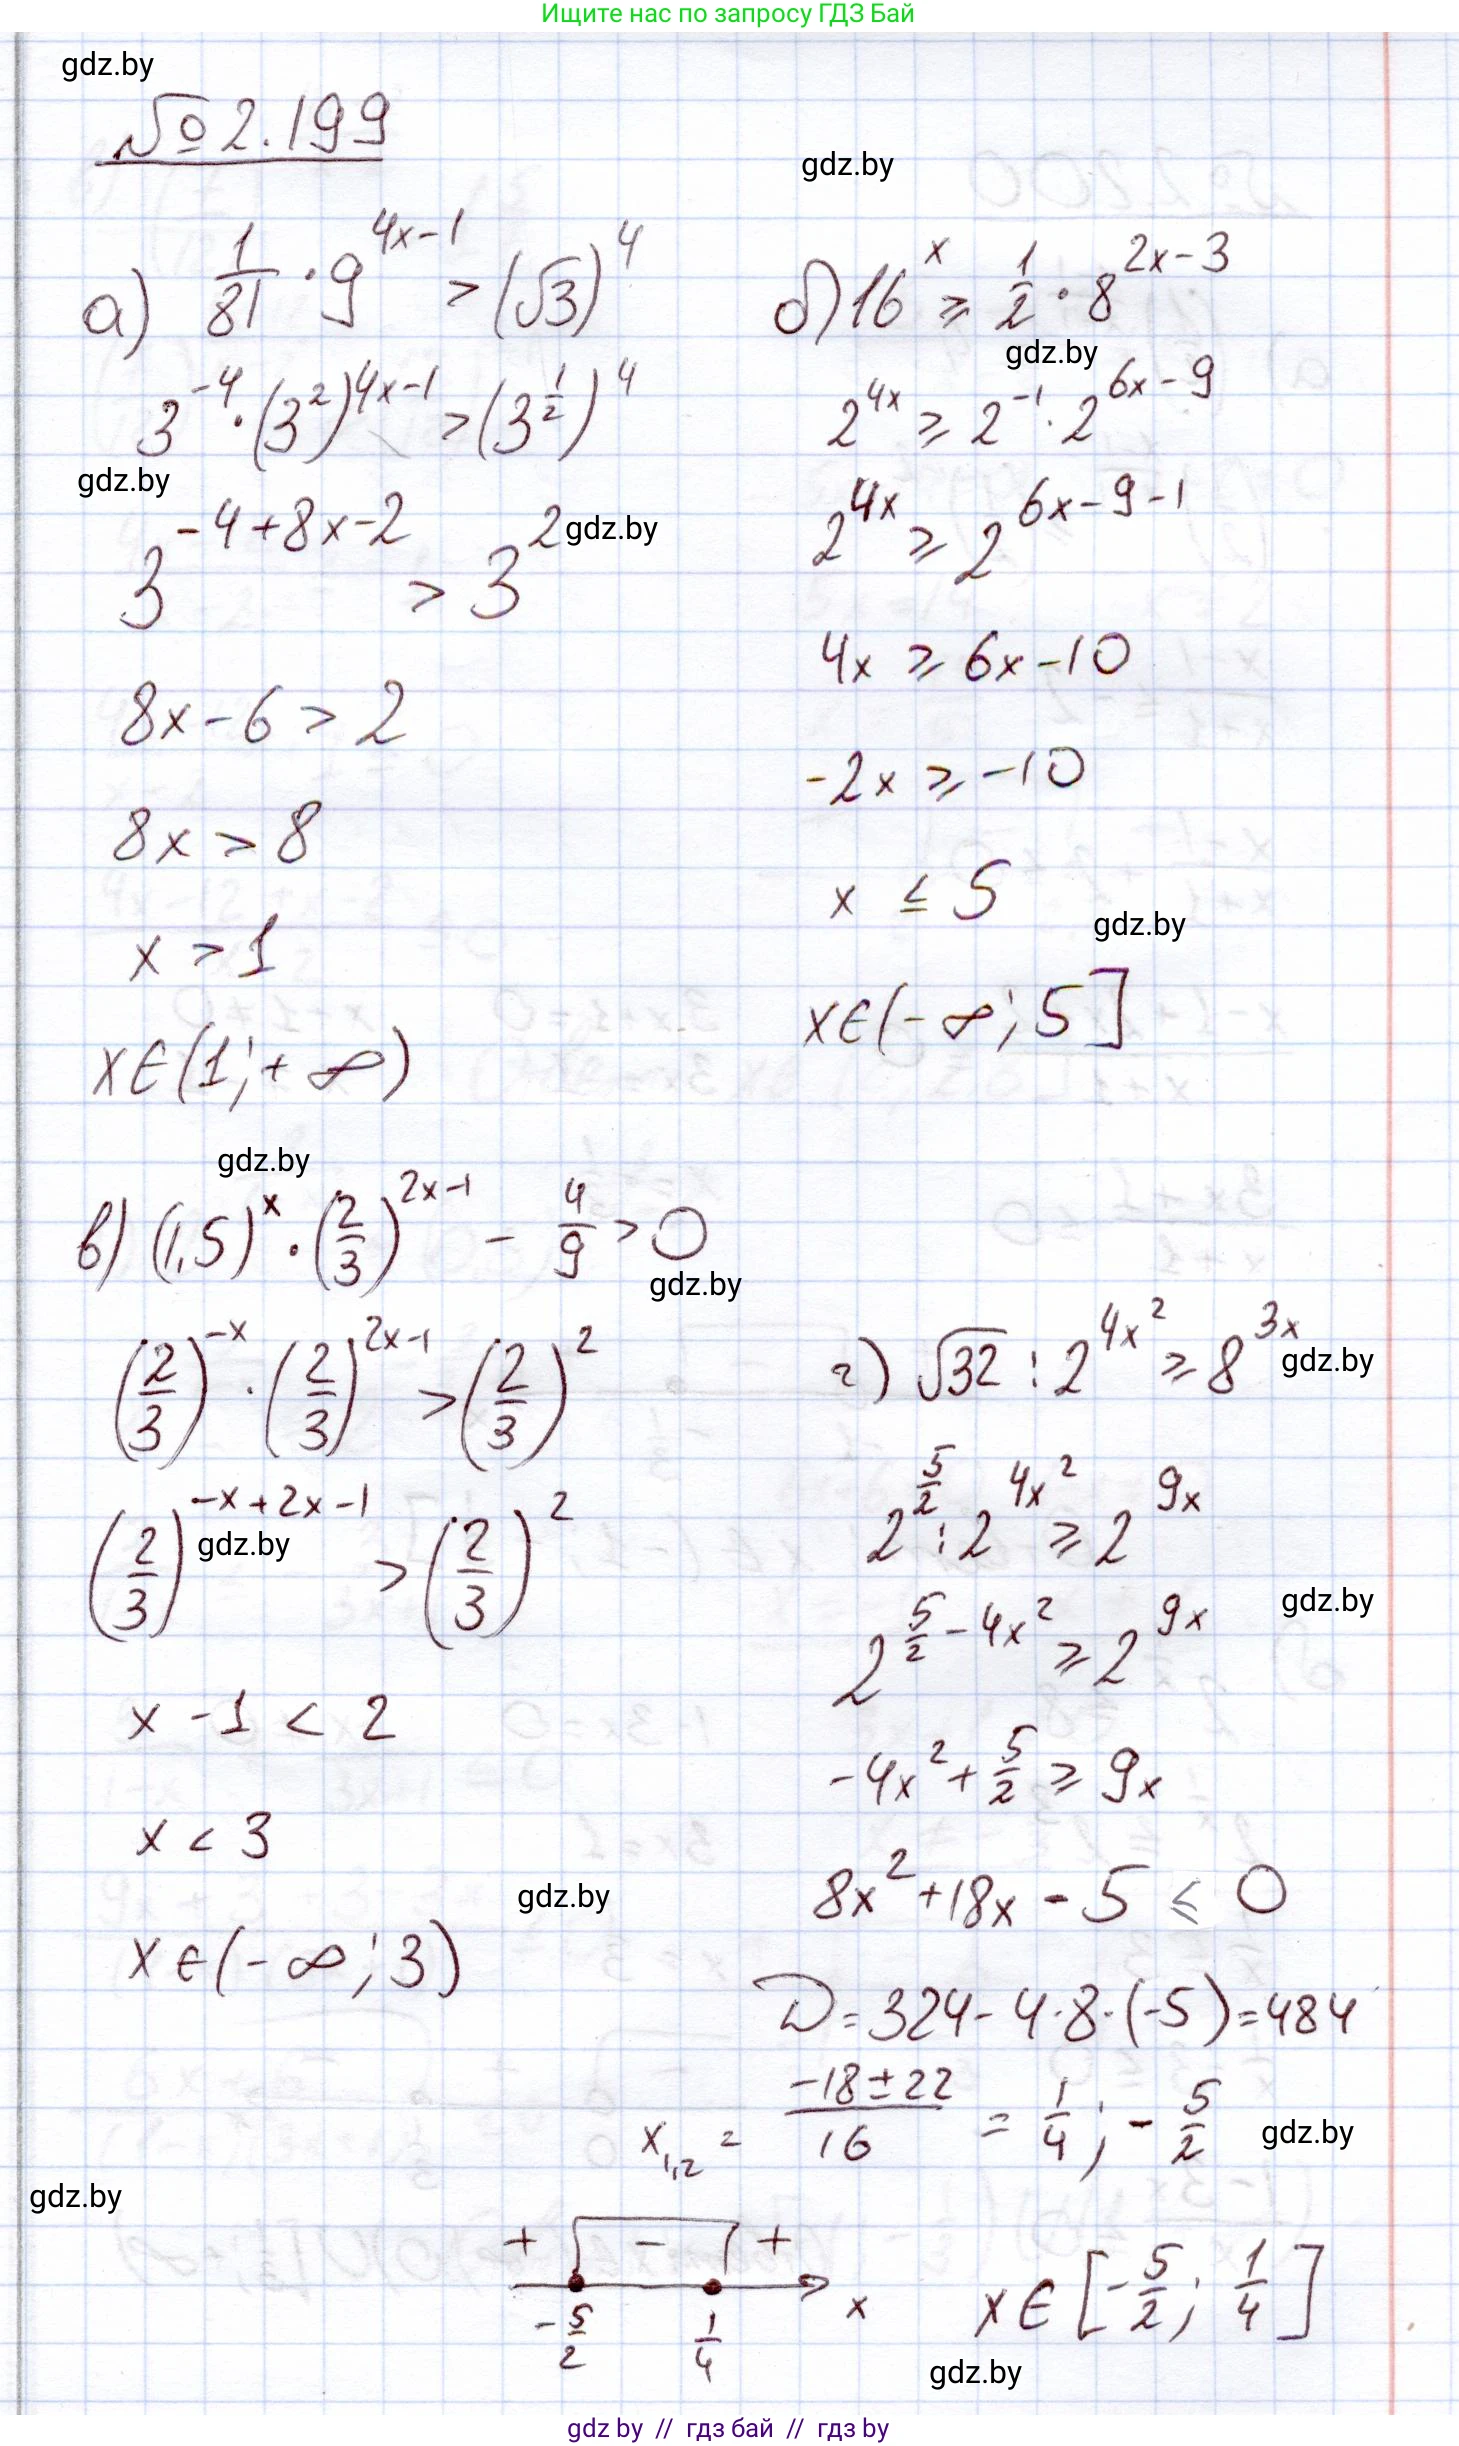 Ищите нас по запросу ГДЗ Бай
gdz.by
№ 2.199
gdz.by
а) 1/81 · 9^(4x-1) > (√3)^4
3^(-4) · (3^2)^(4x-1) > (3^(1/2))^4
gdz.by
3^(-4+8x-2) > 3^2
gdz.by
8x - 6 > 2
8x > 8
x > 1
x∈(1; +∞)
б) 16^x ⩾ 1/2 · 8^(2x-3)
gdz.by
2^(4x) ⩾ 2^(-1) · 2^(6x-9)
2^(4x) ⩾ 2^(6x-9-1)
4x ⩾ 6x-10
-2x ⩾ -10
x ≤ 5
gdz.by
x∈(-∞; 5]
gdz.by
в) (1,5)^x · (2/3)^(2x-1) - 4/9 > 0
gdz.by
(2/3)^(-x) · (2/3)^(2x-1) > (2/3)^2
(2/3)^(-x+2x-1) > (2/3)^2
gdz.by
x - 1 < 2
x < 3
gdz.by
x∈(-∞; 3)
г) √32 : 2^(4x^2) ⩾ 8^(3x)
gdz.by
2^(5/2) : 2^(4x^2) ⩾ 2^(9x)
gdz.by
2^(5/2-4x^2) ⩾ 2^(9x)
-4x^2 + 5/2 ⩾ 9x
8x^2 + 18x - 5 ≤ 0
D = 324 - 4·8·(-5) = 484
x1,2 = (-18±22)/16 = 1/4; -5/2
gdz.by
gdz.by
+ - +
-5/2 1/4 x
x∈[-5/2; 1/4]
gdz.by
gdz by // гдз бай // гдз by